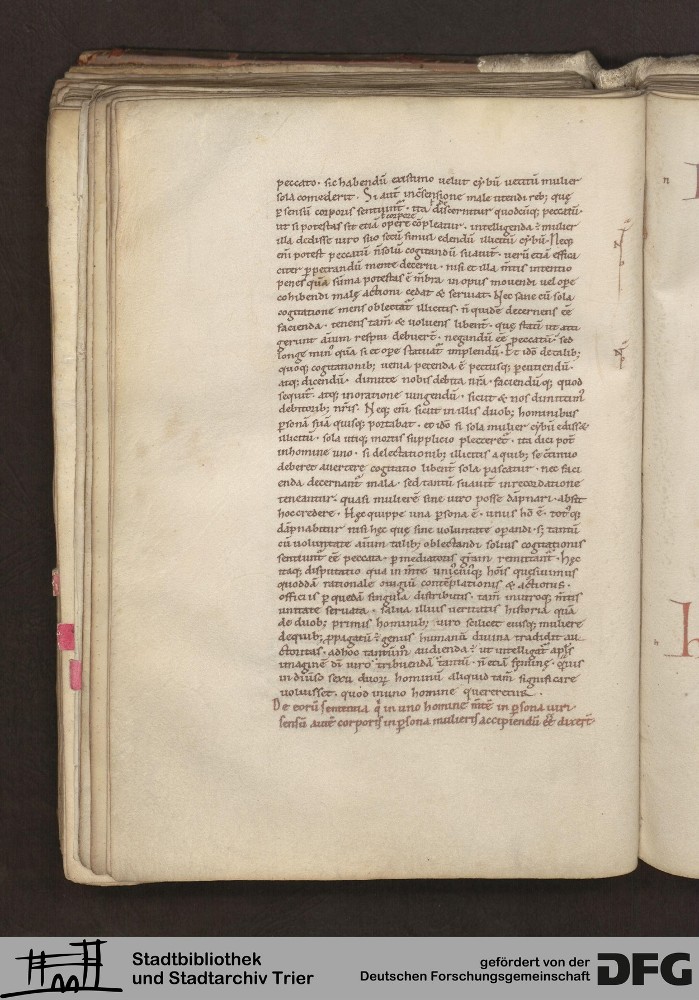 peccato. sic habendū existimo velut cybū vetitū mulier
sola comoderit. Si aut in sensione male utendi rebꝫ quę
ꝑ sensū corporis sentiunt̄. ita discernitur quodcūqꝫ peccatū.
corpore
ut si potestas sit etiā opere cōpleatur. intelligenda ē mulier
illa dedisse viro suo secū simul edendū illicitū cybū. Neqꝫ
eni potest peccatū n̄ solū cogitandū suavit̄. verū etiā effica
citer ꝑpetrandū mente decerni. nisi et illa m̄tis intentio
penes quā sūma potestas ē mēbra in opus movendi vel ab ope
cohibendi malę actioni cedat & serviat. Nec sane cū sola
cogitatione mens oblectat̄ illicitis. n̄ quidē decernens eē
facienda. tenens tam̄ & volvens libent̄. quę statī ut atti
gerunt aīum respui debuert̄. negandū eē peccatū. sed
longe min⁹ quā si et ope statuat̄ implendū. Et ideo de talibꝫ
quoqꝫ cogitationibꝫ venia petenda ē pectusqꝫ ꝑcutiendū
atqꝫ dicendū. dimitte nobis debita nr̄a. faciendūqꝫ quod
sequit̄. atqꝫ in oratione iungendū. sicut & nos dimittim⁹
debitoribꝫ nr̄is. Neqꝫ eni sicut in illis duobꝫ hominibus
ꝑsonā suā quisqꝫ portabat. et ideo si sola mulier cybū edisset
illicitū. sola utiqꝫ mortis supplicio plecteret̄. ita dici pot̄
in homine uno. si delectationibꝫ illicitis a quibꝫ se ctinuo
deberet avertere cogitatio libent̄ sola pascatur. nec faci
enda decernant̄ mala. sed tantū suavit̄ in recordatione
teneantur. quasi mulierē sine viro posse dāpnari. absit
hoc credere. Hęc quippe una ꝑsona ē. unus hō ē. tot⁹qꝫ
dāpnabitur nisi hęc quę sine voluntate opandi. sꝫ tantū
cū voluntate aīum talibꝫ oblectandi solius cogitationis
sentiunt̄ eē peccata. ꝑ mediatoris gr̄am remittant̄. Hęc
itaqꝫ disputatio qua in m̄te uni⁹cuiusqꝫ hōis quęsivimus
quoddā rationale coniugiū contēplationis & actionis.
officiis ꝑ quedā singula distributis. tam̄ in utroqꝫ m̄tis
unitate servata. salva illius veritatis historia quā
de duobꝫ primis hominibꝫ viro scilicet eiusqꝫ muliere
de quibꝫ ꝓpagatū ē genus humanū divina tradidit au
ctoritas. ad hoc tantūm̄o audienda ē ut intelligat̄ apls
imaginē dī viro tribuendā tantū. n̄ etiā feminę. quis
in diverso sexu duor̄ hominū aliquid tam̄ significare
voluisset. quod in uno homine quereretur.
De eorū sententia q̄ in uno homine m̄te in ꝑsona viri
sensū autē corporis in ꝑsona mulieris accipiendū eē dixert̄
Stadtbibliothek
und Stadtarchiv Trier
gefördert von der
Deutschen Forschungsgemeinschaft
DFG